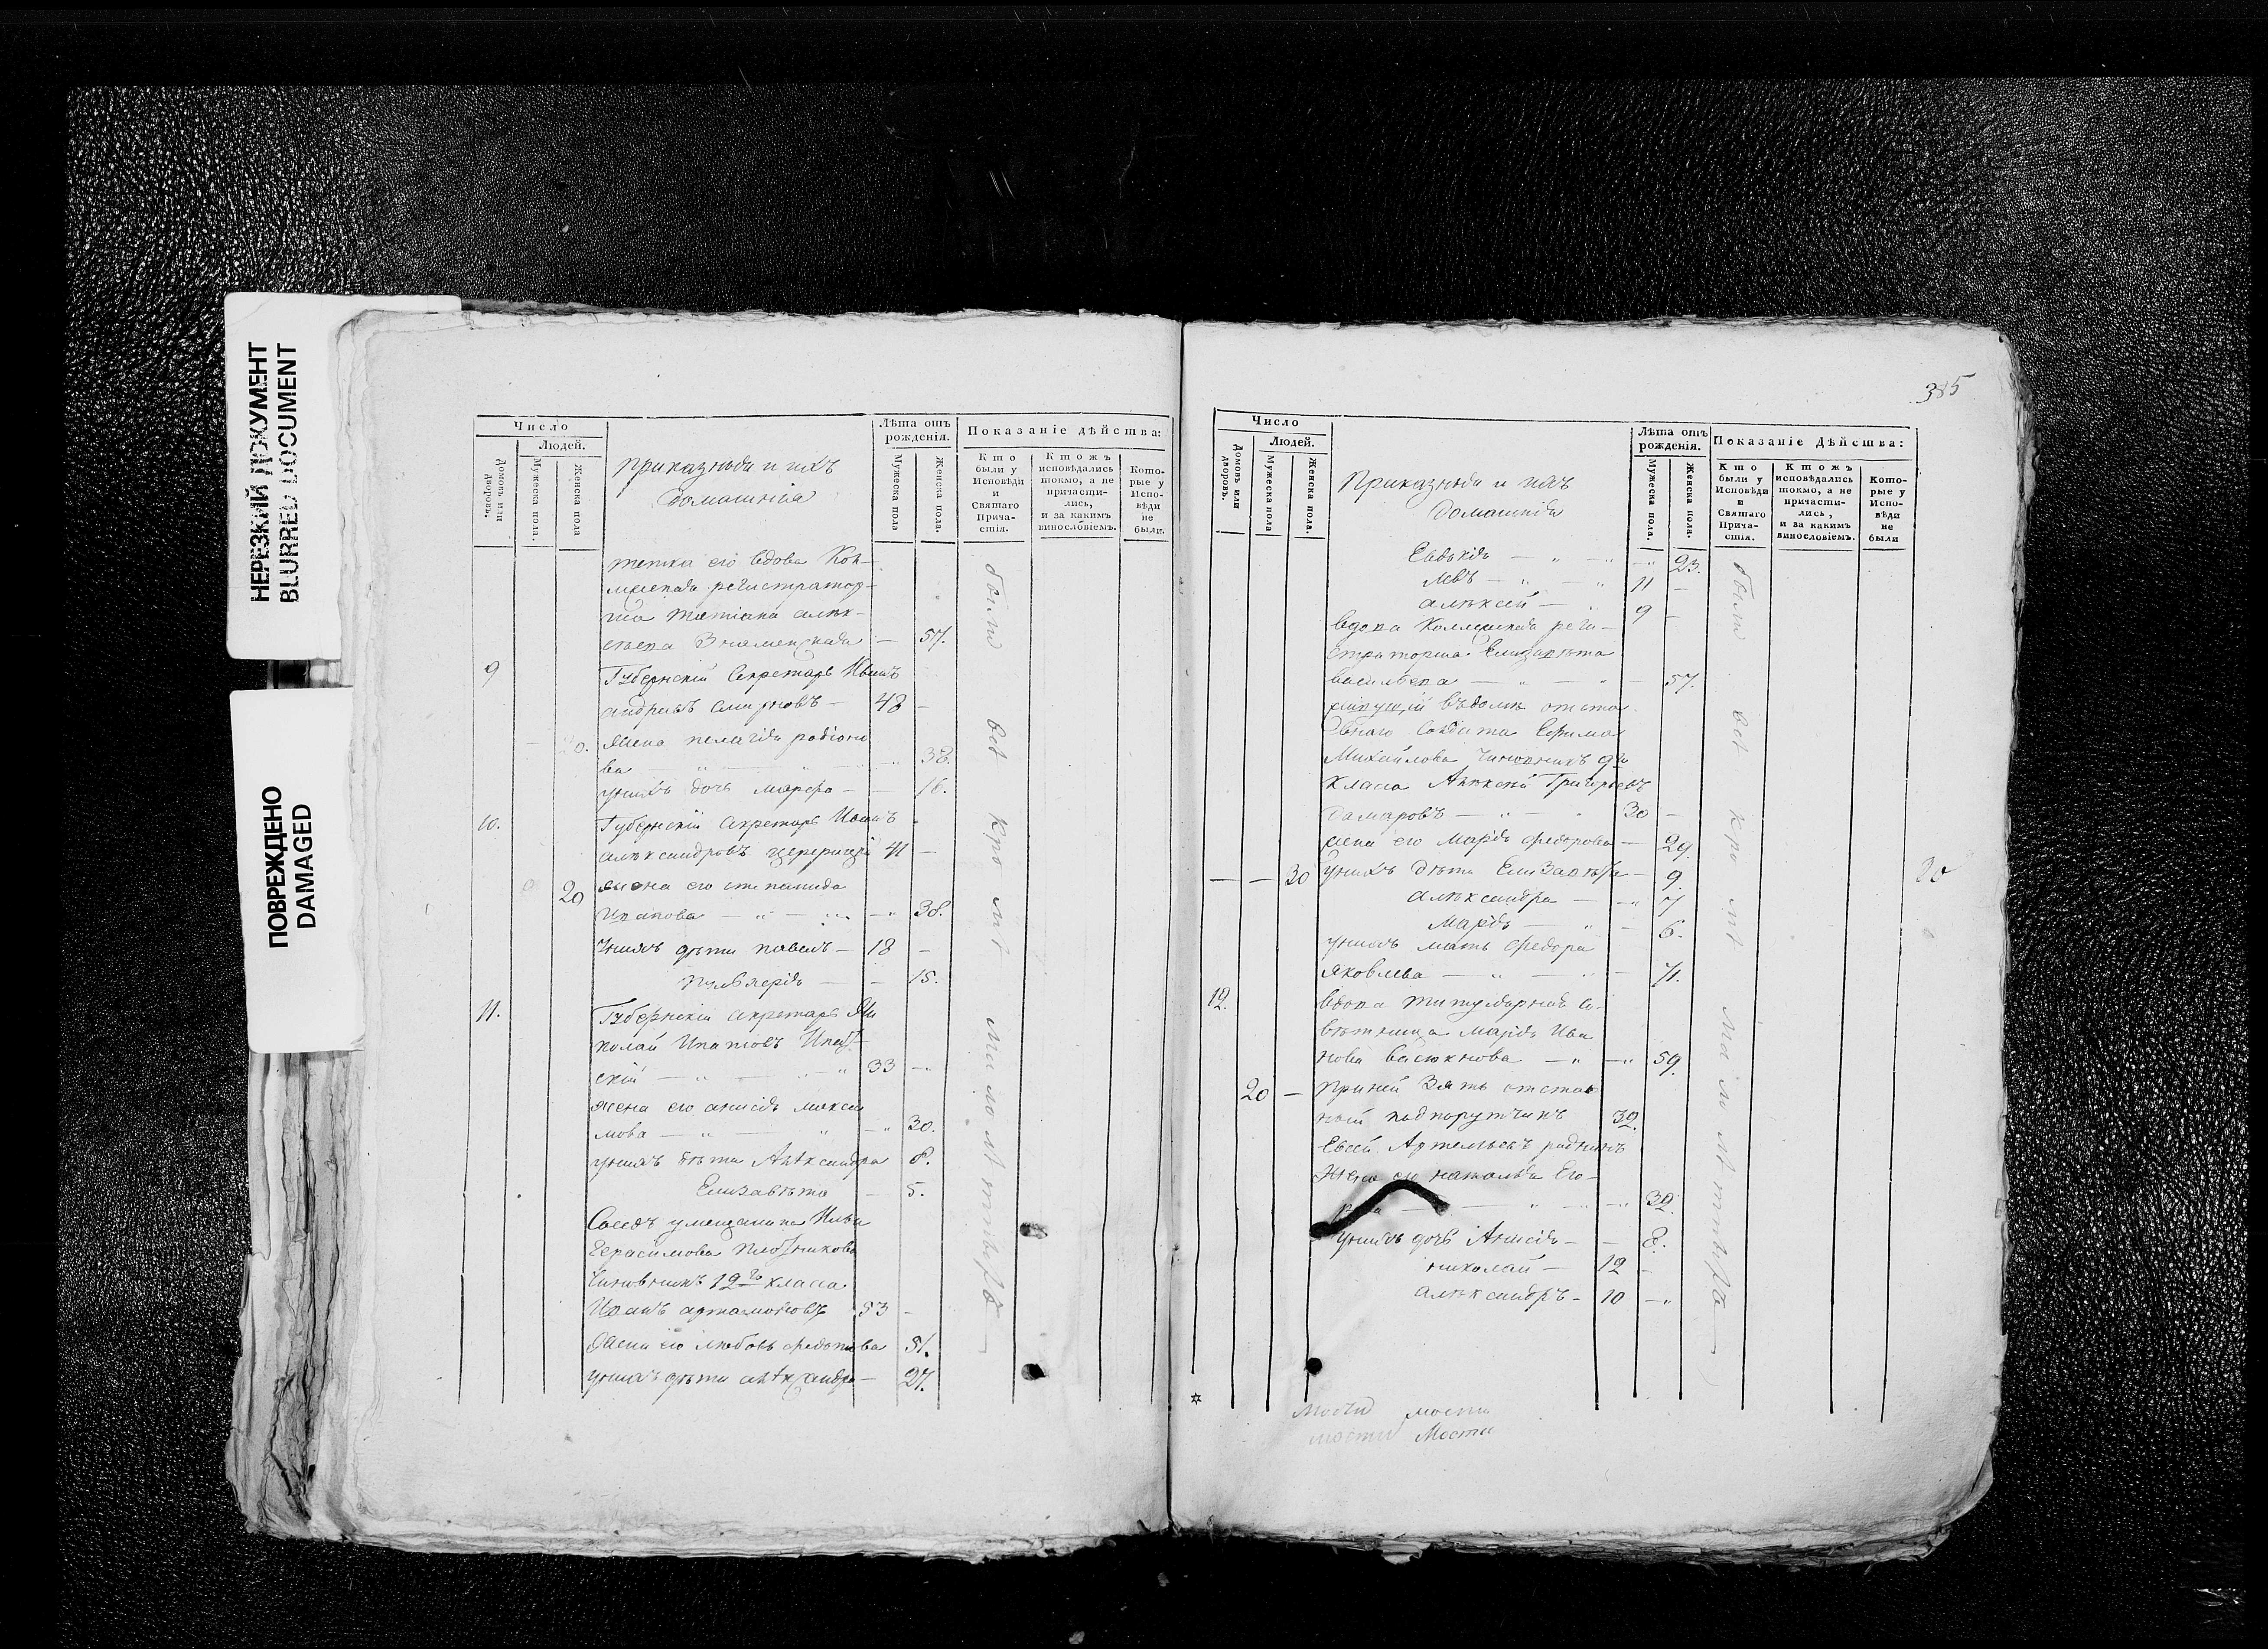 НЕРЕЗКИЙ ДОКУМЕНТ
BLURRED DOCUMENT
ПОВРЕЖДЕНО
DAMAGED
Число
Людей.
Домовъ или дворовъ.
Мужеска пола.
Женска пола
приказныя и ихъ
домашнія
Лѣта отъ рожденія.
Мужеска пола
Женска пола.
Показаніе дѣйства:
Кто были у Исповѣди и Святаго Прича-стія.
Ктожъ исповѣдались токмо, а не причасти-лись, и за какимъ винословіемъ.
Кото-рые у Испо-вѣди не были.
тетка его вдова Кол-
лежская регистратор-
ша Татіана алек-
сѣева Знаменская — 57.
9 Губернскій Секретарь Иванъ
андреевъ смирновъ — 48 —
жена пелагія родіоно
ва — 38.
унихъ дочь марфа — — 16.
10. Губернскій секретарь Иванъ
александровъ 41 —
20 жена его степанида
Иванова — 38.
Унихъ дѣти павелъ — 18 —
пульхерія — — 15.
11. Губернскій секретарь Ни
колай Ипатовъ
скій — 33 —
жена его анисія макси
мова — 30.
унихъ дѣти Александра 8.
Елизавета — 5.
Сосѣдъ умещанина Ильи
Герасимова Плотникова
Чиновникъ 12го класса
Иванъ артамоновъ 53 —
Жена его любовь федотова 51.
унихъ дѣти александра — 27.
были всѣ кромѣ малолѣтныхъ
385
Число
Людей.
Домовъ или дворовъ.
Мужеска пола
Женска пола.
Приказныя и ихъ
домашнія
Лѣта отъ рожденія.
Мужеска пола.
Женска пола.
Показаніе Дѣйства:
Кто были у Исповѣди и Святаго Прича-стія.
Ктожъ исповѣдались токмо, а не причасти-лись, и за какимъ винословіемъ.
Кото-рые у Испо-вѣди не были
Евдокія — 23.
левъ — 11 —
алексѣй — 9 —
вдова Коллежская реги-
страторша Елизавета
васильева — 57.
живущій въдомѣ отста
внаго солдата Ефима
Михайлова чиновникъ 9го
класса Алексѣй Григорьевъ
Дамаровъ — 30 —
жена его Марія федорова — 29.
— — 30 унихъ дѣти Елизавета — 9.
александра — 7
Марія — 6.
унихъ мать федора
яковлева — 71.
12. вдова титулярная со-
вѣтница Марія Ива
нова — 59.
20 — приней зять отстав
ной подпорутчикъ 32.
Евсей Артемьевъ
Жена его наталья его-
рова — 32.
унихъ дочь Анисія — — 8.
николай — 12 —
александръ — 10 —
были всѣ кромѣ малолѣтныхъ
20
мости мости
мости Мости